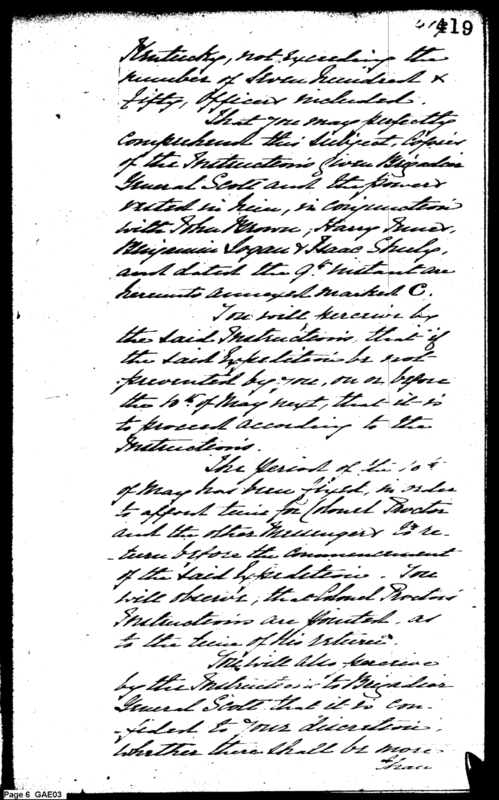 419
Kentucky, not exceeding the
number of Seven hundred &
fifty, Officers included.
That you may perfectly
comprehend this subject, Copies
of the Instructions given Brigadier
General Scott and the powers
vested in him, in conjunction
with John Brown, Harry Innes,
Benjamin Logan & Isaac Shelby,
and dated the 9th instant are
hereunto annexed marked C.
You will perceive by
the said Instructions, that if
the said Expedition be not
prevented by you, on or before
the 10th of May next, that it is
to proceed according to the
Instructions.
The period of the 10th
of May has been fixed, in order
to afford time for Colonel Proctor
and the other Messengers to re-
-turn before the commencement
of the said Expedition. You
will observe, that Colonel Proctors
Instructions are pointed, as
to the time of his return.
You will also perceive
by the Instructions to Brigadier
General Scott that it is con-
-fided to your discretion,
whether there shall be more
than
Page 6 GAE03